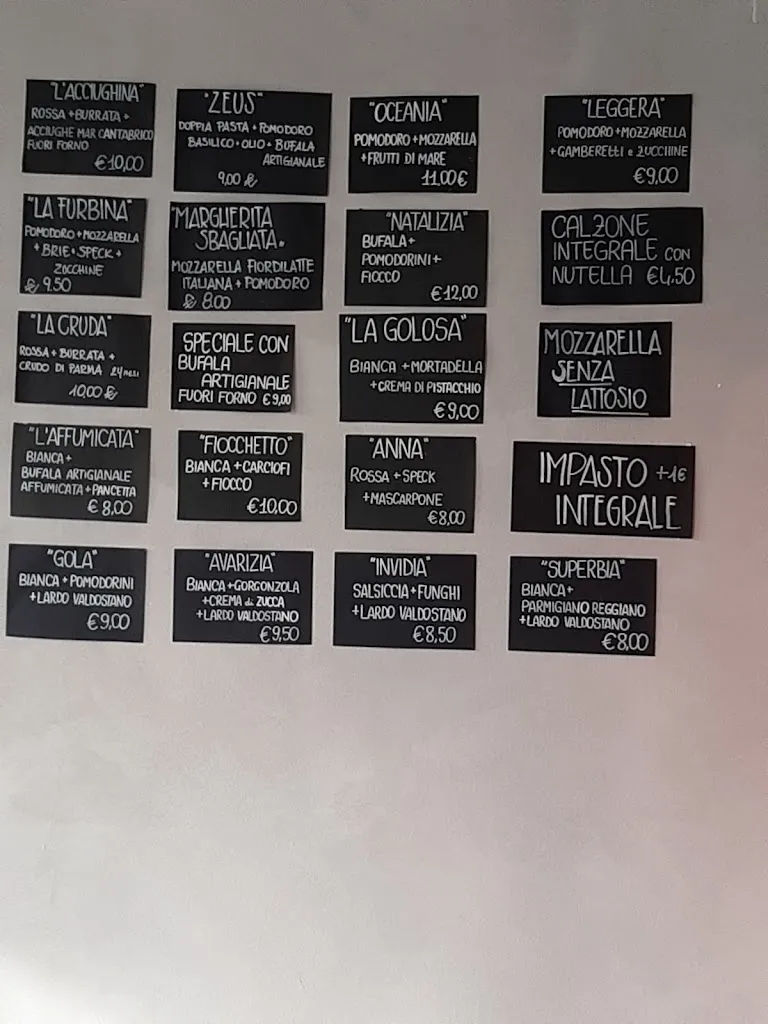 "L'ACCIUGHINA"
ROSSA + BURRATA +
ACCIUGHE MAR CANTABRICO
FUORI FORNO
€10,00
"ZEUS"
DOPPIA PASTA + POMODORO
BASILICO + OLIO + BUFALA
ARTIGIANALE
9,00 €
"OCEANIA"
POMODORO + MOZZARELLA
+ FRUTTI DI MARE
11,00 €
"LEGGERA"
POMODORO + MOZZARELLA
+ GAMBERETTI e ZUCCHINE
€9,00
"LA FURBINA"
POMODORO + MOZZARELLA
+ BRIE + SPECK +
ZUCCHINE
€ 9.50
"MARGHERITA
SBAGLIATA"
MOZZARELLA FIORDILATTE
ITALIANA + POMODORO
€ 8.00
"NATALIZIA"
BUFALA +
POMODORINI +
FIOCCO
€12,00
CALZONE
INTEGRALE CON
NUTELLA €4,50
"LA CRUDA"
ROSSA + BURRATA +
CRUDO DI PARMA 24 MESI
10,00 €
SPECIALE CON
BUFALA
ARTIGIANALE
FUORI FORNO €9,00
"LA GOLOSA"
BIANCA + MORTADELLA
+ CREMA DI PISTACCHIO
€9,00
MOZZARELLA
SENZA
LATTOSIO
"L'AFFUMICATA"
BIANCA +
BUFALA ARTIGIANALE
AFFUMICATA + PANCETTA
€ 8,00
"FIOCCHETTO"
BIANCA + CARCIOFI
+ FIOCCO
€10,00
"ANNA"
ROSSA + SPECK
+ MASCARPONE
€8,00
IMPASTO +1€
INTEGRALE
"GOLA"
BIANCA + POMODORINI
+ LARDO VALDOSTANO
€9,00
"AVARIZIA"
BIANCA + GORGONZOLA
+ CREMA di ZUCCA
+ LARDO VALDOSTANO
€9,50
"INVIDIA"
SALSICCIA + FUNGHI
+ LARDO VALDOSTANO
€8,50
"SUPERBIA"
BIANCA +
PARMIGIANO REGGIANO
+ LARDO VALDOSTANO
€8,00